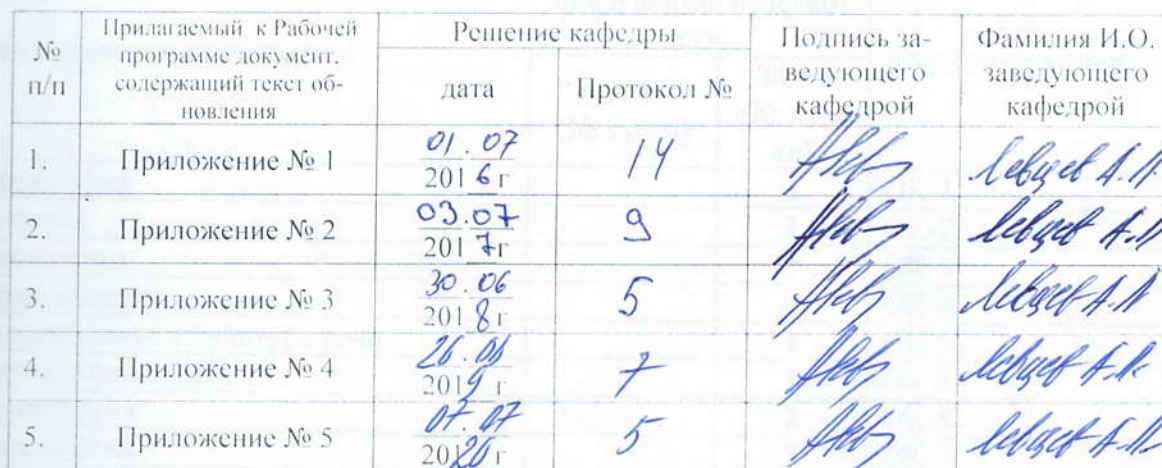 № п/п
Прилагаемый к Рабочей программе документ, содержащий текст обновления
Решение кафедры
дата
Протокол №
Подпись заведующего кафедрой
Фамилия И.О. заведующего кафедрой
1. Приложение № 1 01.07 2016 г 14 Левцев А.П.
2. Приложение № 2 03.07 2017 г 9 Левцев А.П.
3. Приложение № 3 30.06 2018 г 5 Левцев А.П.
4. Приложение № 4 26.06 2019 г 7 Левцев А.П.
5. Приложение № 5 07.07 2020 г 5 Левцев А.П.